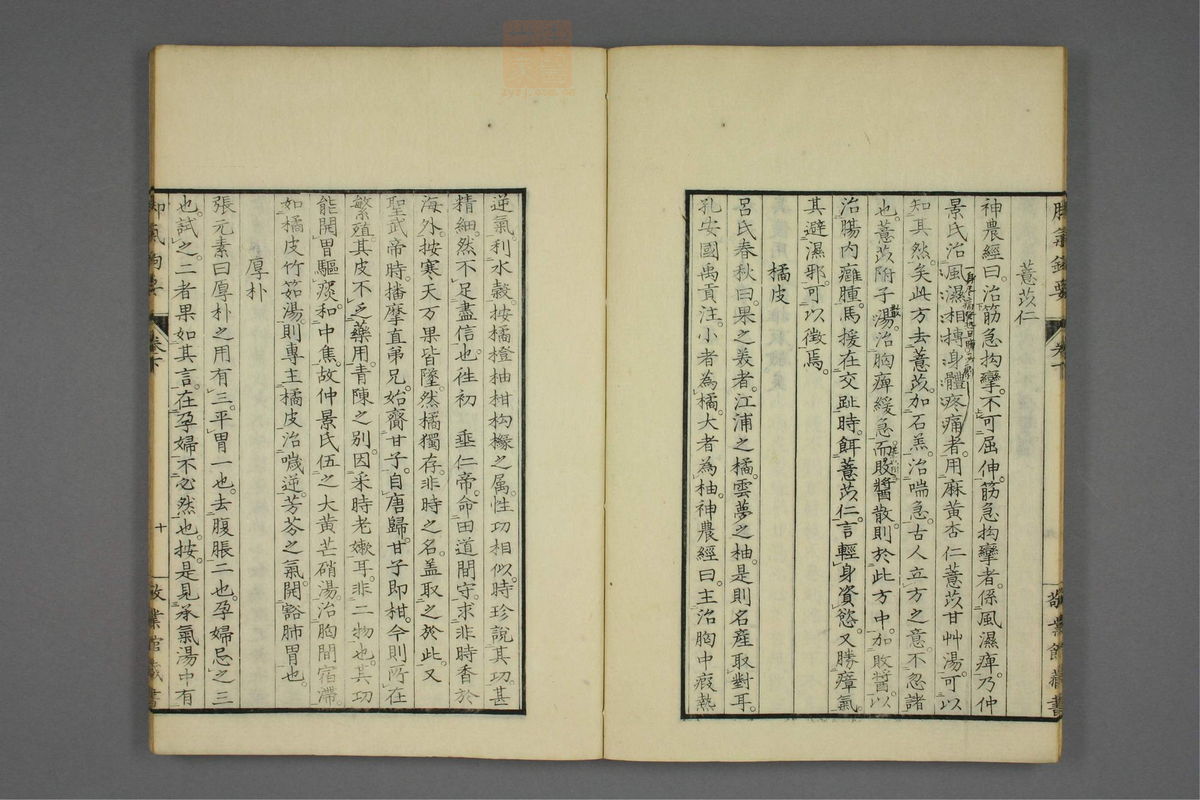 薏苡仁
神農經曰。治筋急拘攣。不可屈伸。筋急拘攣者。係風濕痺。乃仲
景氏治風濕相搏身體疼痛者。用麻黃杏仁薏苡甘艸湯。可以
知其然矣。此方去薏苡。加石羔。治喘急。古人立方之意。不忽諸
也。薏苡附子湯。治胸痺緩急。而敗醬散。則於此方中。加敗醬。以
治腸內癰腫。馬援在交趾時。餌薏苡仁。言輕身資慾。又勝瘴氣。
其避濕邪。可以徵焉。
橘皮
呂氏春秋曰。果之美者。江浦之橘。雲夢之柚。是則名產取對耳。
孔安國禹貢注。小者為橘。大者為柚。神農經曰。主治胸中瘕熱
逆氣利水穀。按橘橙柚柑枸櫞之属。性功相似。時珍說其功。甚
精細。然不足盡信也。往初 垂仁帝。命田道間守。求非時香於
海外。按寒天万果皆墜。然橘獨存。非時之名。盖取之於此。又
聖武帝時。播摩直弟兄。始齎甘子。自唐歸。甘子即柑。今則所在
繁殖。其皮不乏藥用。青陳之別。因采時老嫰耳。非二物也。其功
能開胃驅痰。和中焦。故仲景氏伍之大黃芒硝湯。治胸間宿滯。
如橘皮竹筎湯。則專主橘皮治噦逆。芳芬之氣。開豁肺胃也。
厚朴
張元素曰。厚朴之用有三。平胃一也。去腹脹二也。孕婦忌之三
也。試之。二者果如其言。在孕婦不必然也。按。是見承氣湯中有
卷下
十